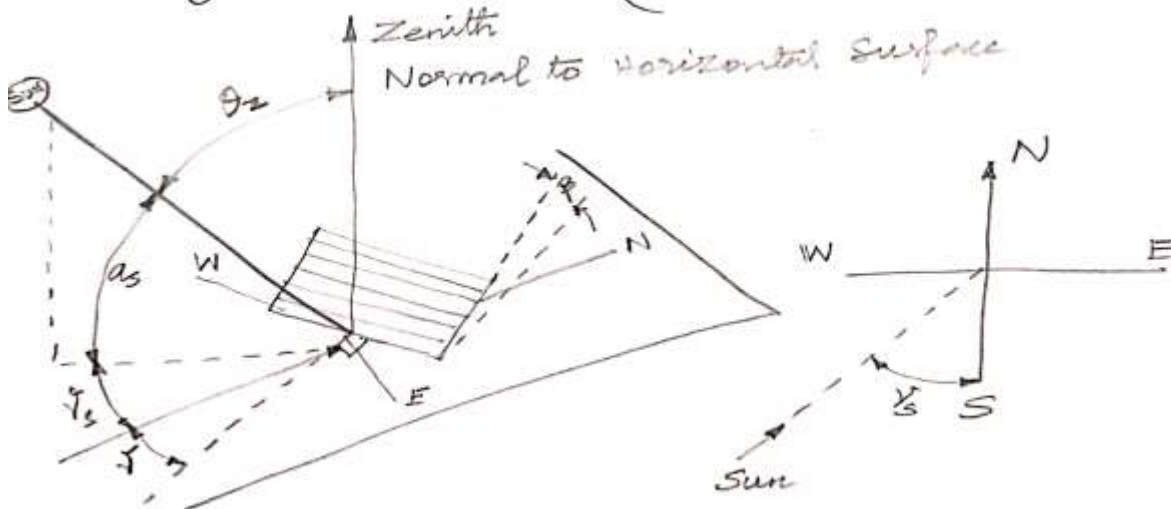 Zenith
Normal to Horizontal Surface
Sun
θz
W
N
αs
γs
γ
E
N
W
E
γs
S
Sun